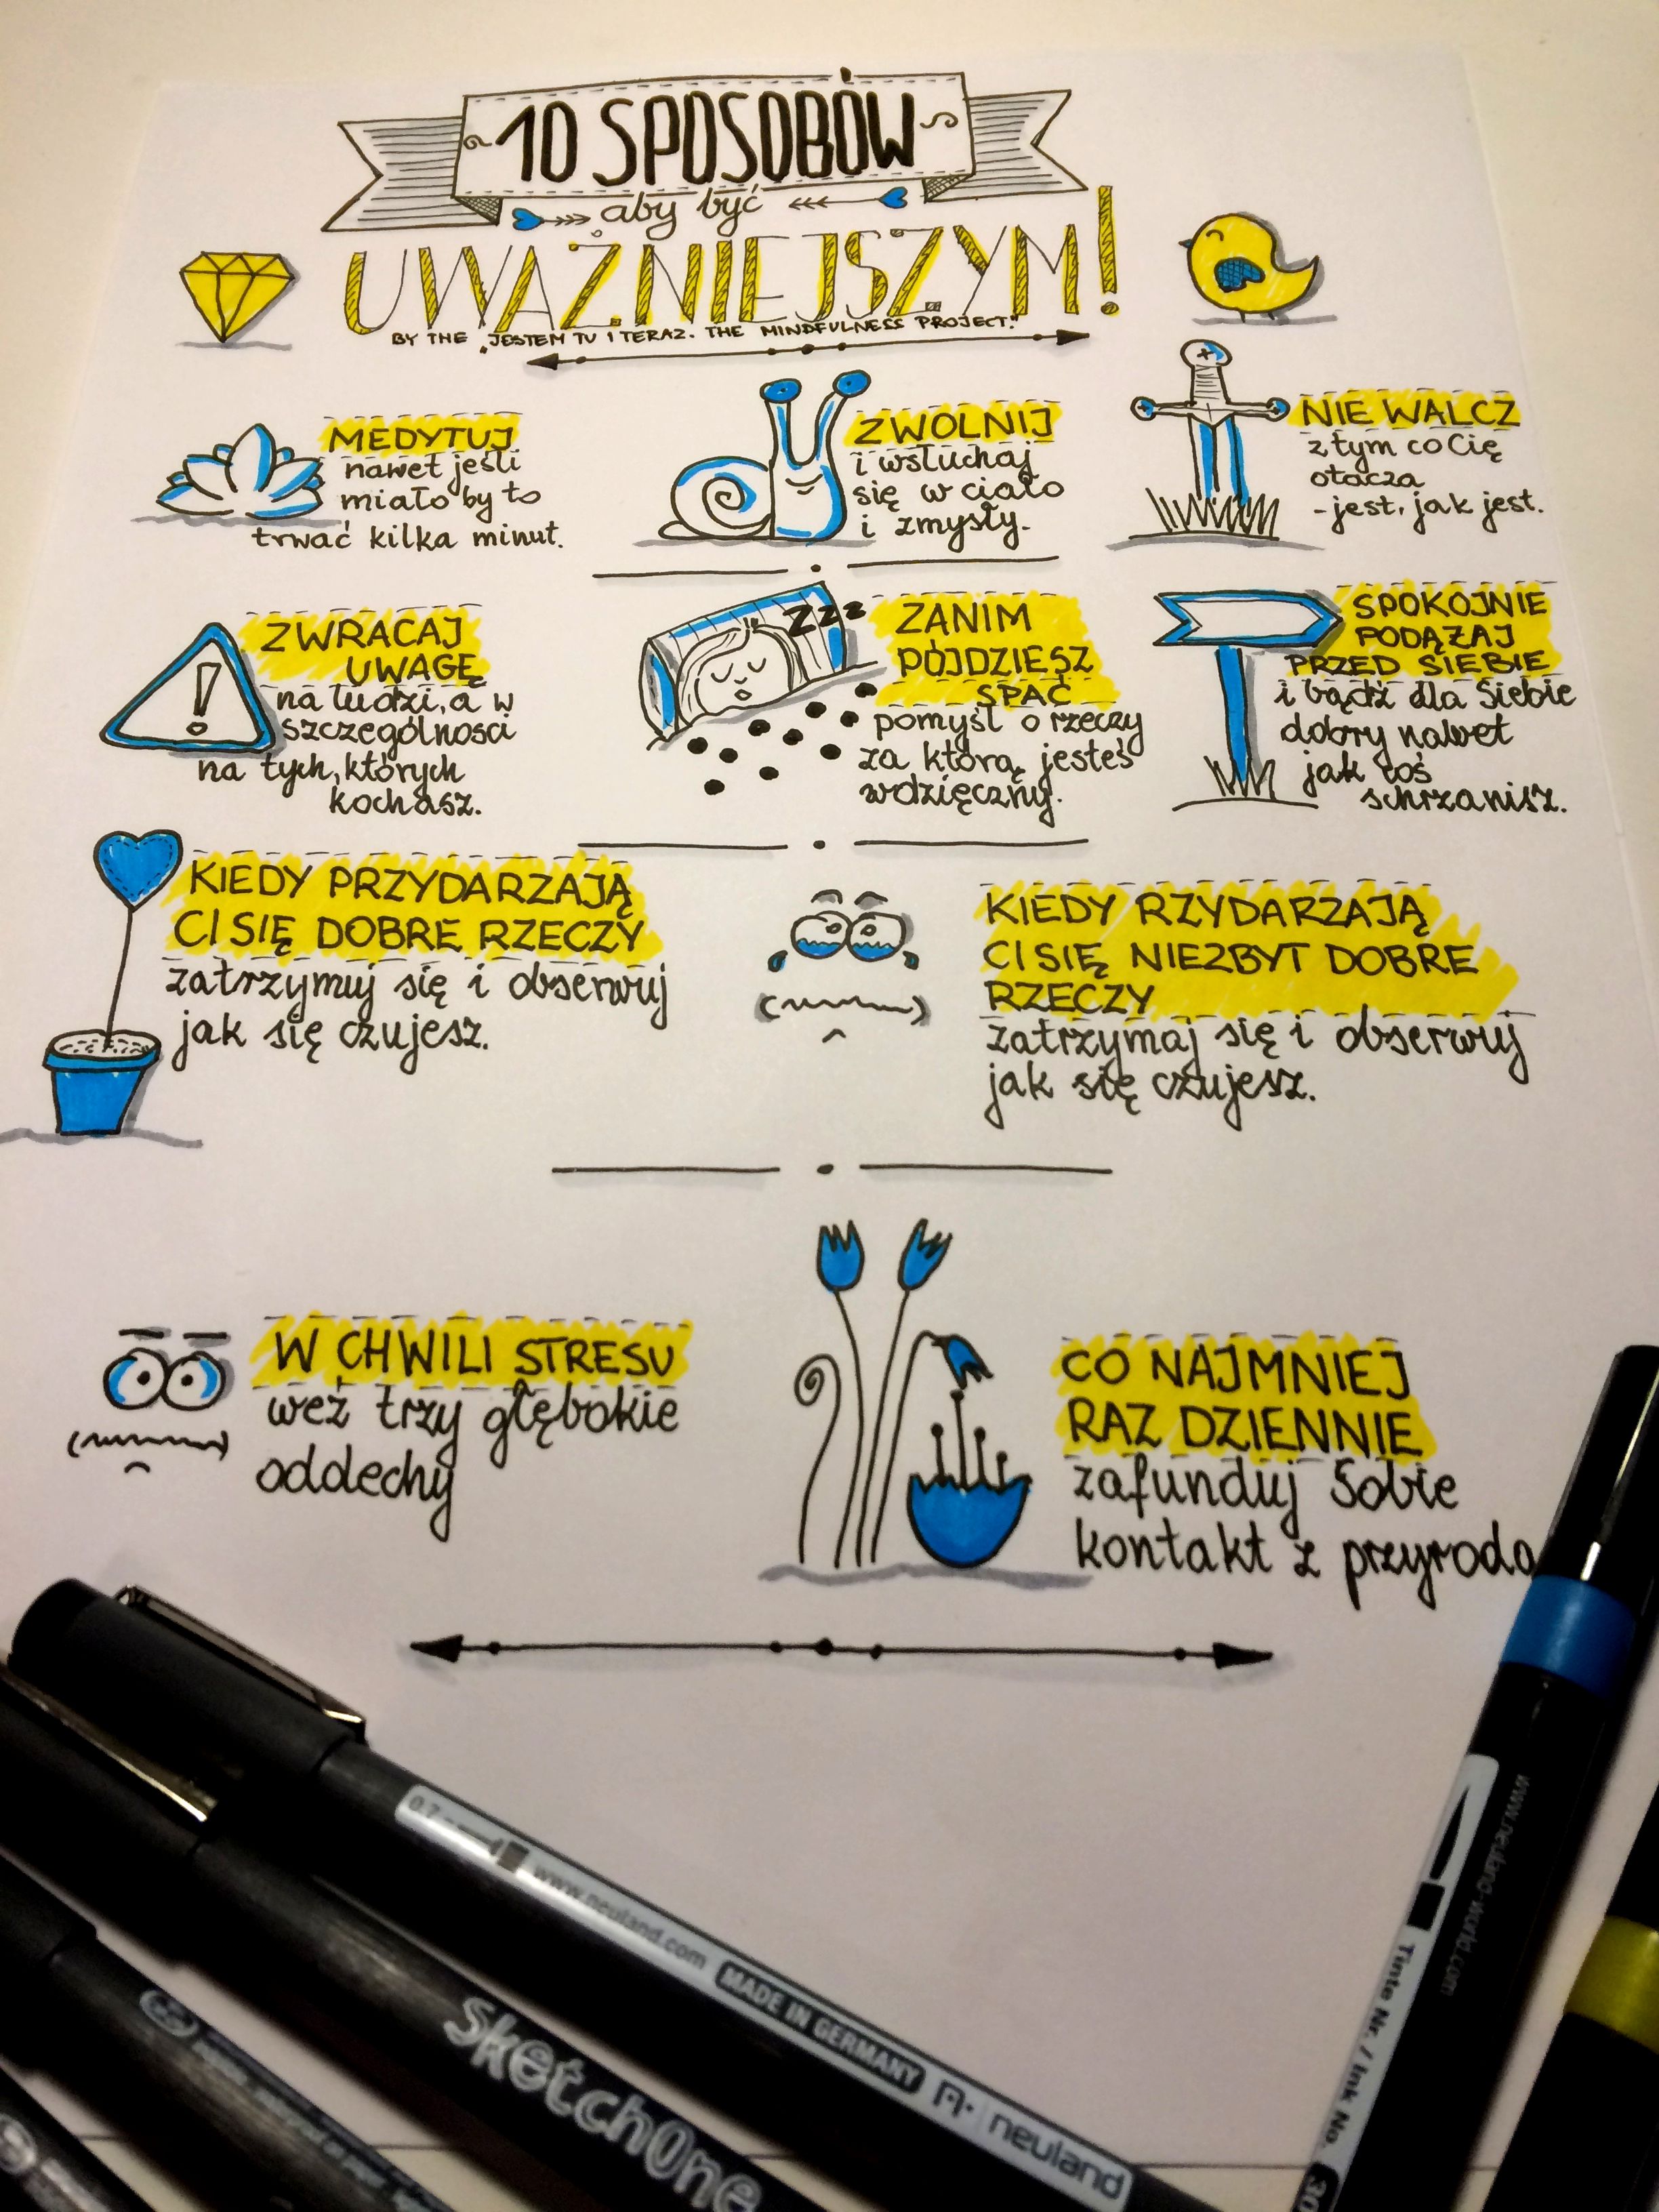 10 SPOSOBÓW
aby być
UWAŻNIEJSZYM!
BY THE „JESTEM TU I TERAZ. THE MINDFULNESS PROJECT."
MEDYTUJ
nawet jeśli
miało by to
trwać kilka minut.
ZWOLNIJ
i wsłuchaj
się w ciało
i zmysły.
NIE WALCZ
z tym co Cię
otacza
- jest, jak jest.
ZWRACAJ
UWAGĘ
na ludzi, a w
szczególności
na tych, których
kochasz.
ZZZ
ZANIM
PÓJDZIESZ
SPAĆ
pomyśl o rzeczy
za którą jesteś
wdzięczny.
SPOKOJNIE
PODĄŻAJ
PRZED SIEBIE
i bądź dla Siebie
dobry nawet
jak coś
schrzanisz.
KIEDY PRZYDARZAJĄ
CI SIĘ DOBRE RZECZY
zatrzymuj się i obserwuj
jak się czujesz.
KIEDY RZYDARZAJĄ
CI SIĘ NIEZBYT DOBRE
RZECZY
zatrzymaj się i obserwuj
jak się czujesz.
W CHWILI STRESU
weź trzy głębokie
oddechy
CO NAJMNIEJ
RAZ DZIENNIE
zafunduj Sobie
kontakt z przyrodą
0.7 www.neuland.com MADE IN GERMANY neuland
SketchOne
www.neuland-world.com
Tinte Nr. / Ink No. 30